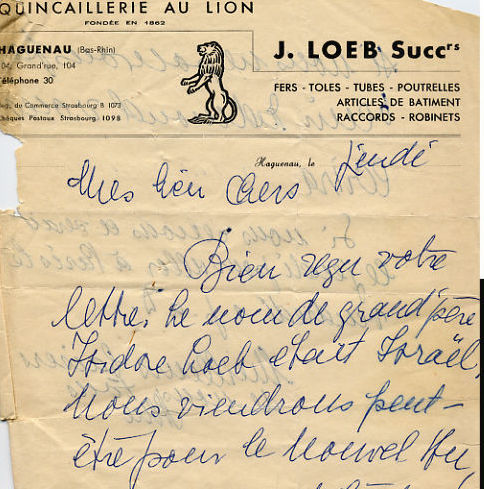 QUINCAILLERIE AU LION
FONDÉE EN 1862
HAGUENAU (Bas-Rhin)
104, Grand'rue, 104
Téléphone 30
Reg. de Commerce Strasbourg B 1073
Chèques Postaux Strasbourg 1098
J. LOEB Succrs
FERS - TOLES - TUBES - POUTRELLES
ARTICLES DE BATIMENT
RACCORDS - ROBINETS
Haguenau, le jeudi
Mes bien chers
Bien reçu votre
lettre, le nom de grand'père
Isidore Loeb était Israël,
nous viendrons peut-
être pour le Nouvel An,